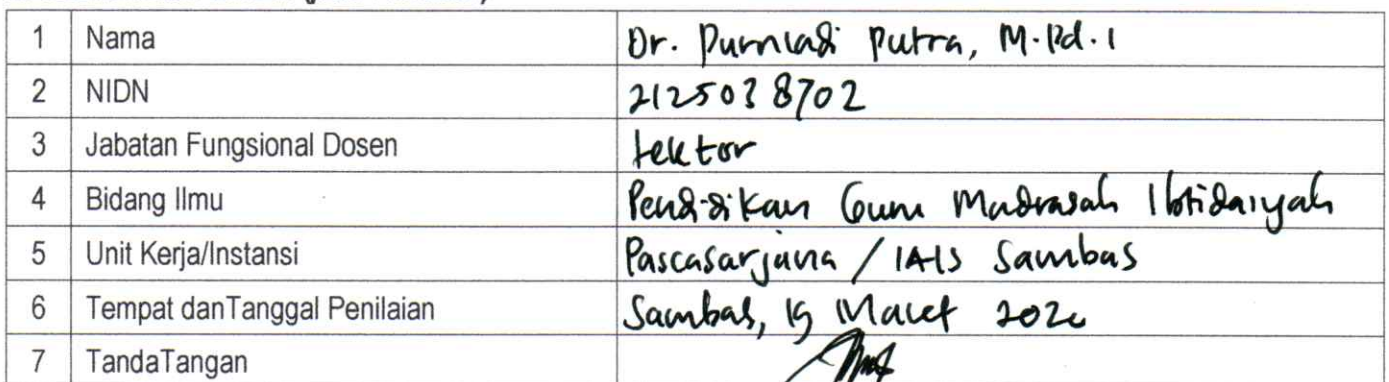 1 Nama Dr. Purniadi Putra, M.Pd.I
2 NIDN 2125038702
3 Jabatan Fungsional Dosen Lektor
4 Bidang Ilmu Pendidikan Guru Madrasah Ibtidaiyah
5 Unit Kerja/Instansi Pascasarjana / IAIS Sambas
6 Tempat danTanggal Penilaian Sambas, Maret
7 TandaTangan